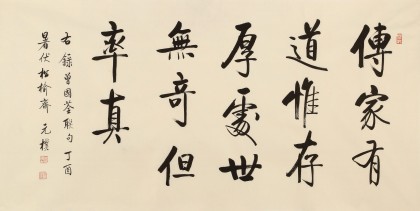 傳家有
道惟存
厚處世
無奇但
率真
右錄曾國荃聯句丁酉
暑伏松榆齋 元櫻